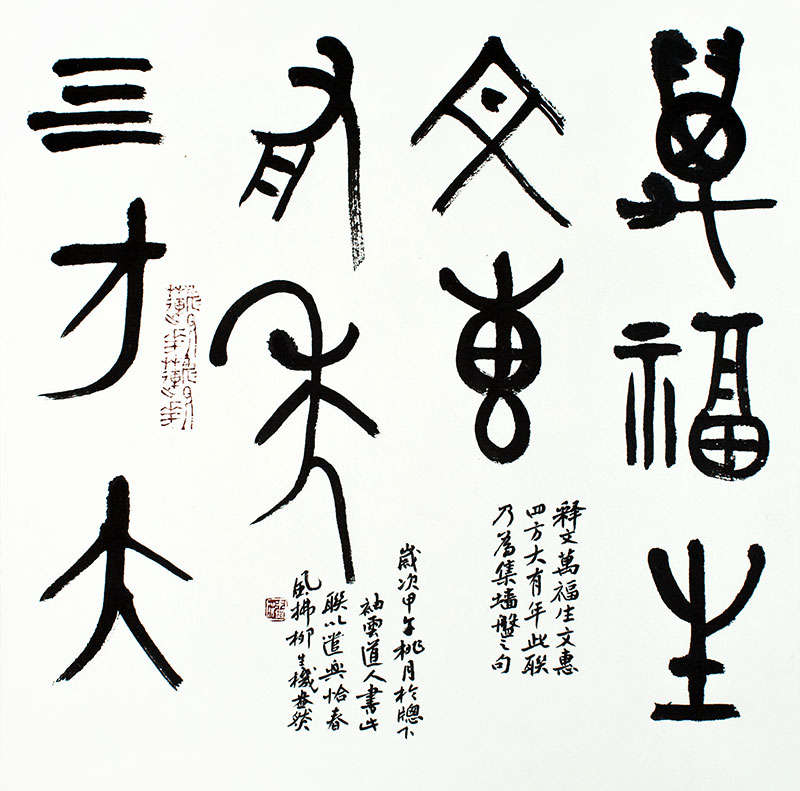 萬福生
文惠
四方大
有年
释文萬福生文惠
四方大有年此联
乃為集墻盤之句
歲次甲午桃月於牕下
袖雲道人書此
聯以遣興恰春
風拂柳生機盎然